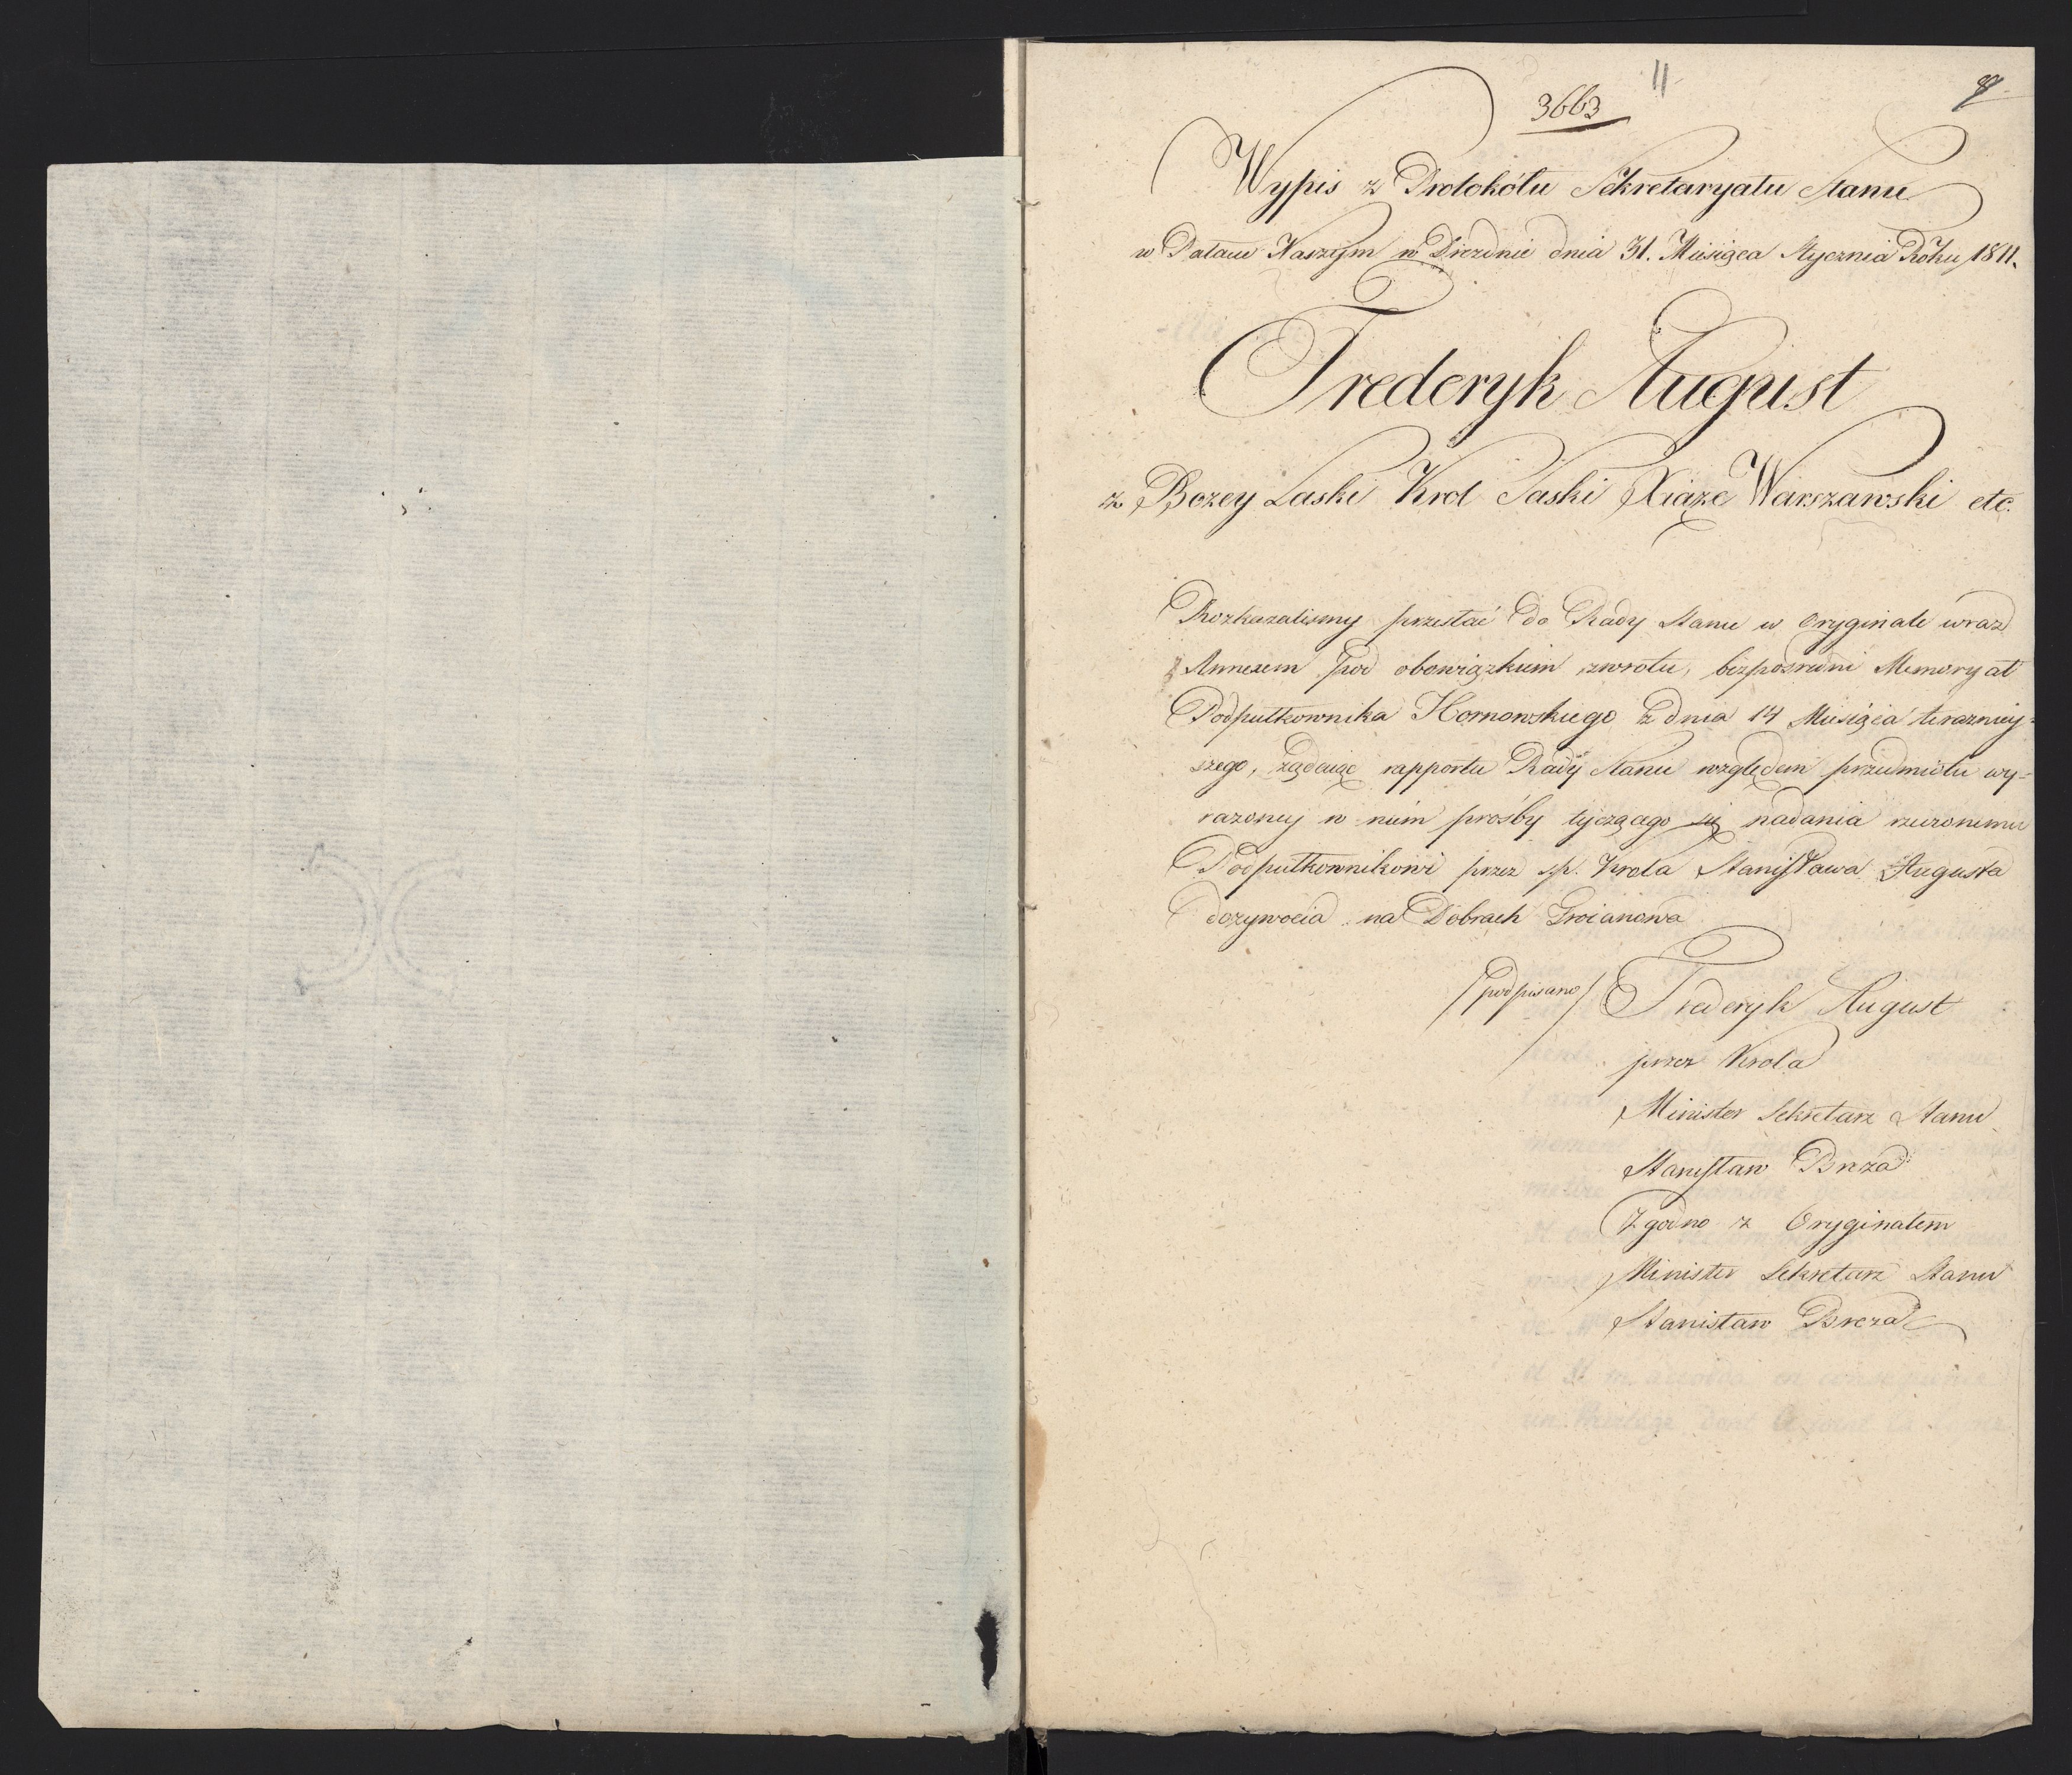 11
3663
Wypis z Protokółu Sekretaryatu Stanu
w Pałacu Naszym w Dreznie dnia 31. Miesiąca Stycznia Roku 1811.
Frederyk August
z Bozey Łaski Krol Saski Xiąze Warszawski etc.
Rozkazalismy przesłać do Rady Stanu w Oryginale wraz
z Annexem pod obowiązkiem zwrotu, bezposredni Memoryał
Podpułkownika Hornowskiego z dnia 14 Miesiąca teraznieỳ-
szego, żądaiąc rapportu Rady Stanu względem przedmiotu wy-
razoney w niem prośby tyczącego się nadania rzeczonemu
Podpułkownikowi przez s.p. Krola Stanisława Augusta
dozywocia na Dobrach Groianowa
/podpisano/ Frederyk August
przez Krola
Minister Sekretarz Stanu
Stanisław Breza
Zgodno z Oryginałem
Minister Sekretarz Stanu
Stanisław Breza